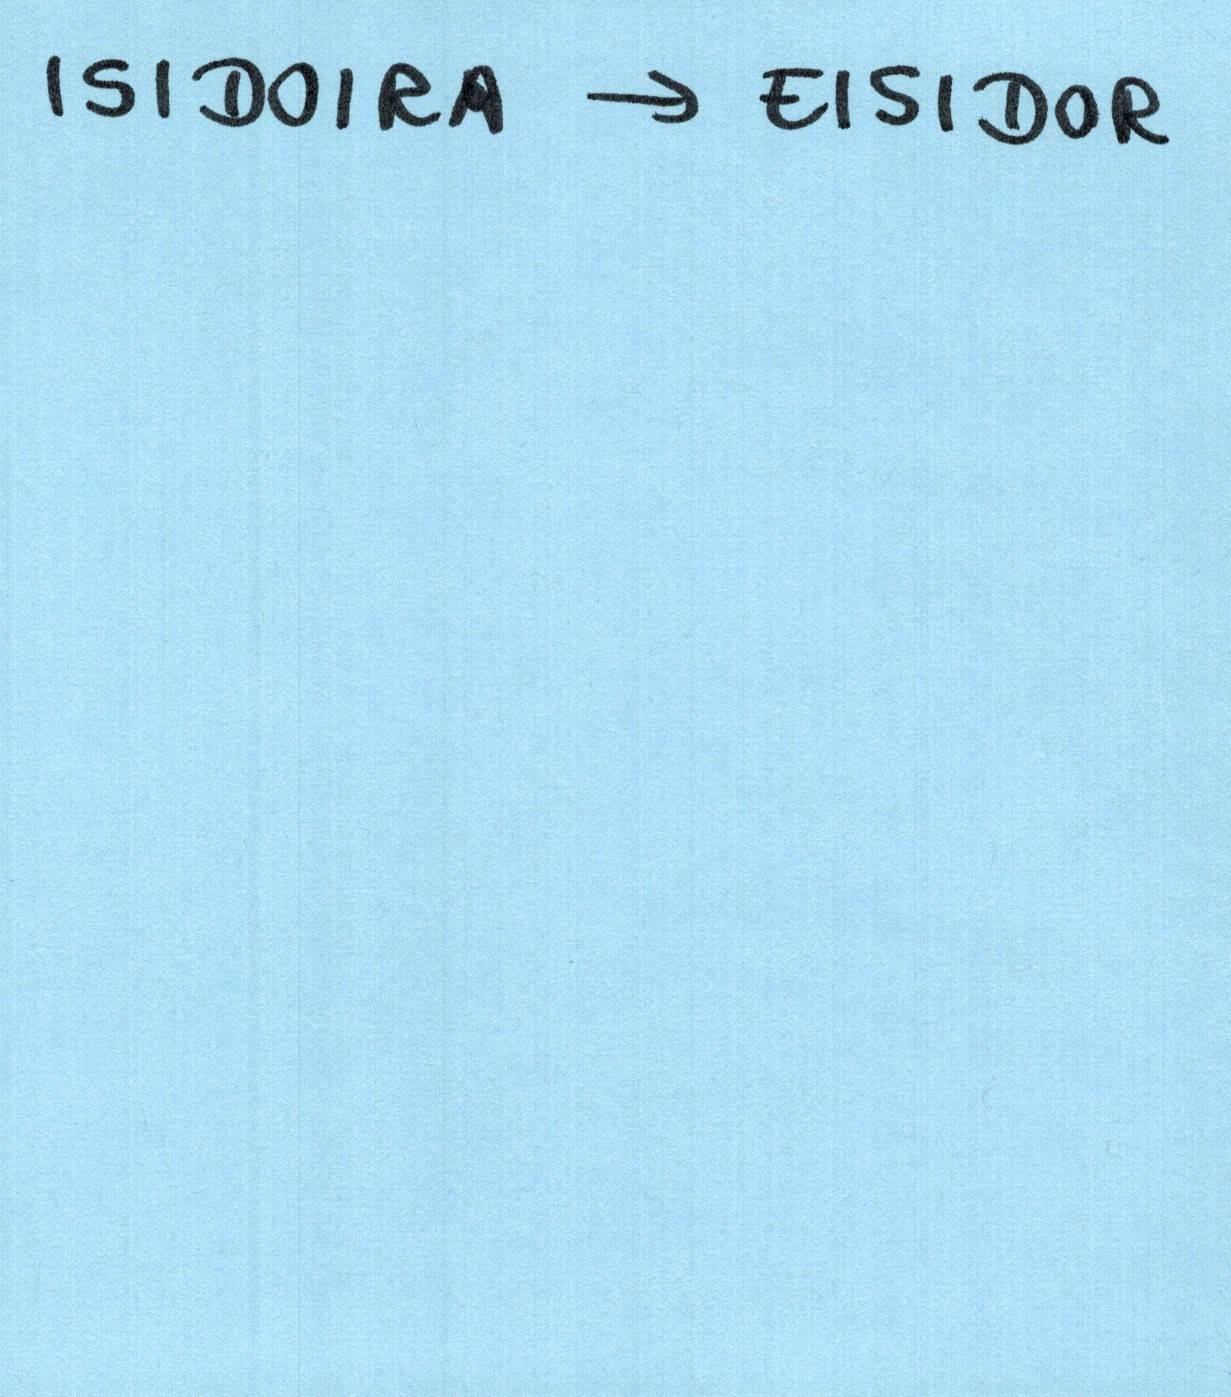 ISIDOIRA → EISIDOR